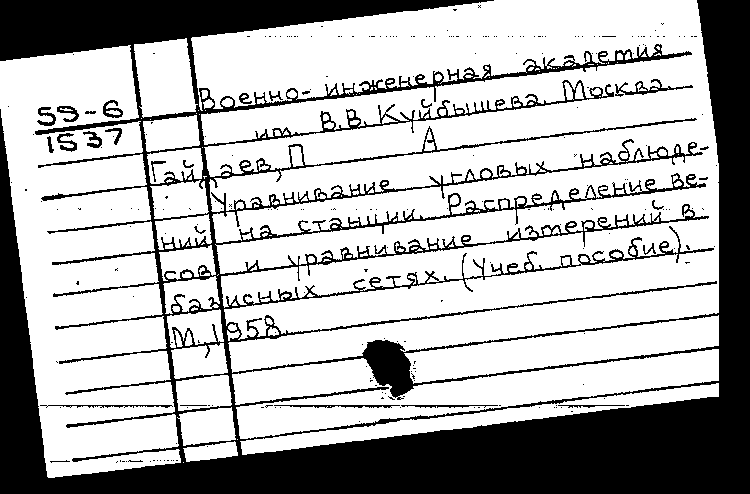 59-6
1537
Военно-инженерная академия
им. В.В. Куйбышева. Москва.
Гайдаев, П А
Уравнивание угловых наблюде-
ний на станции. Распределение ве-
сов и уравнивание измерений в
базисных сетях. (Учеб. пособие).
М., 1958.